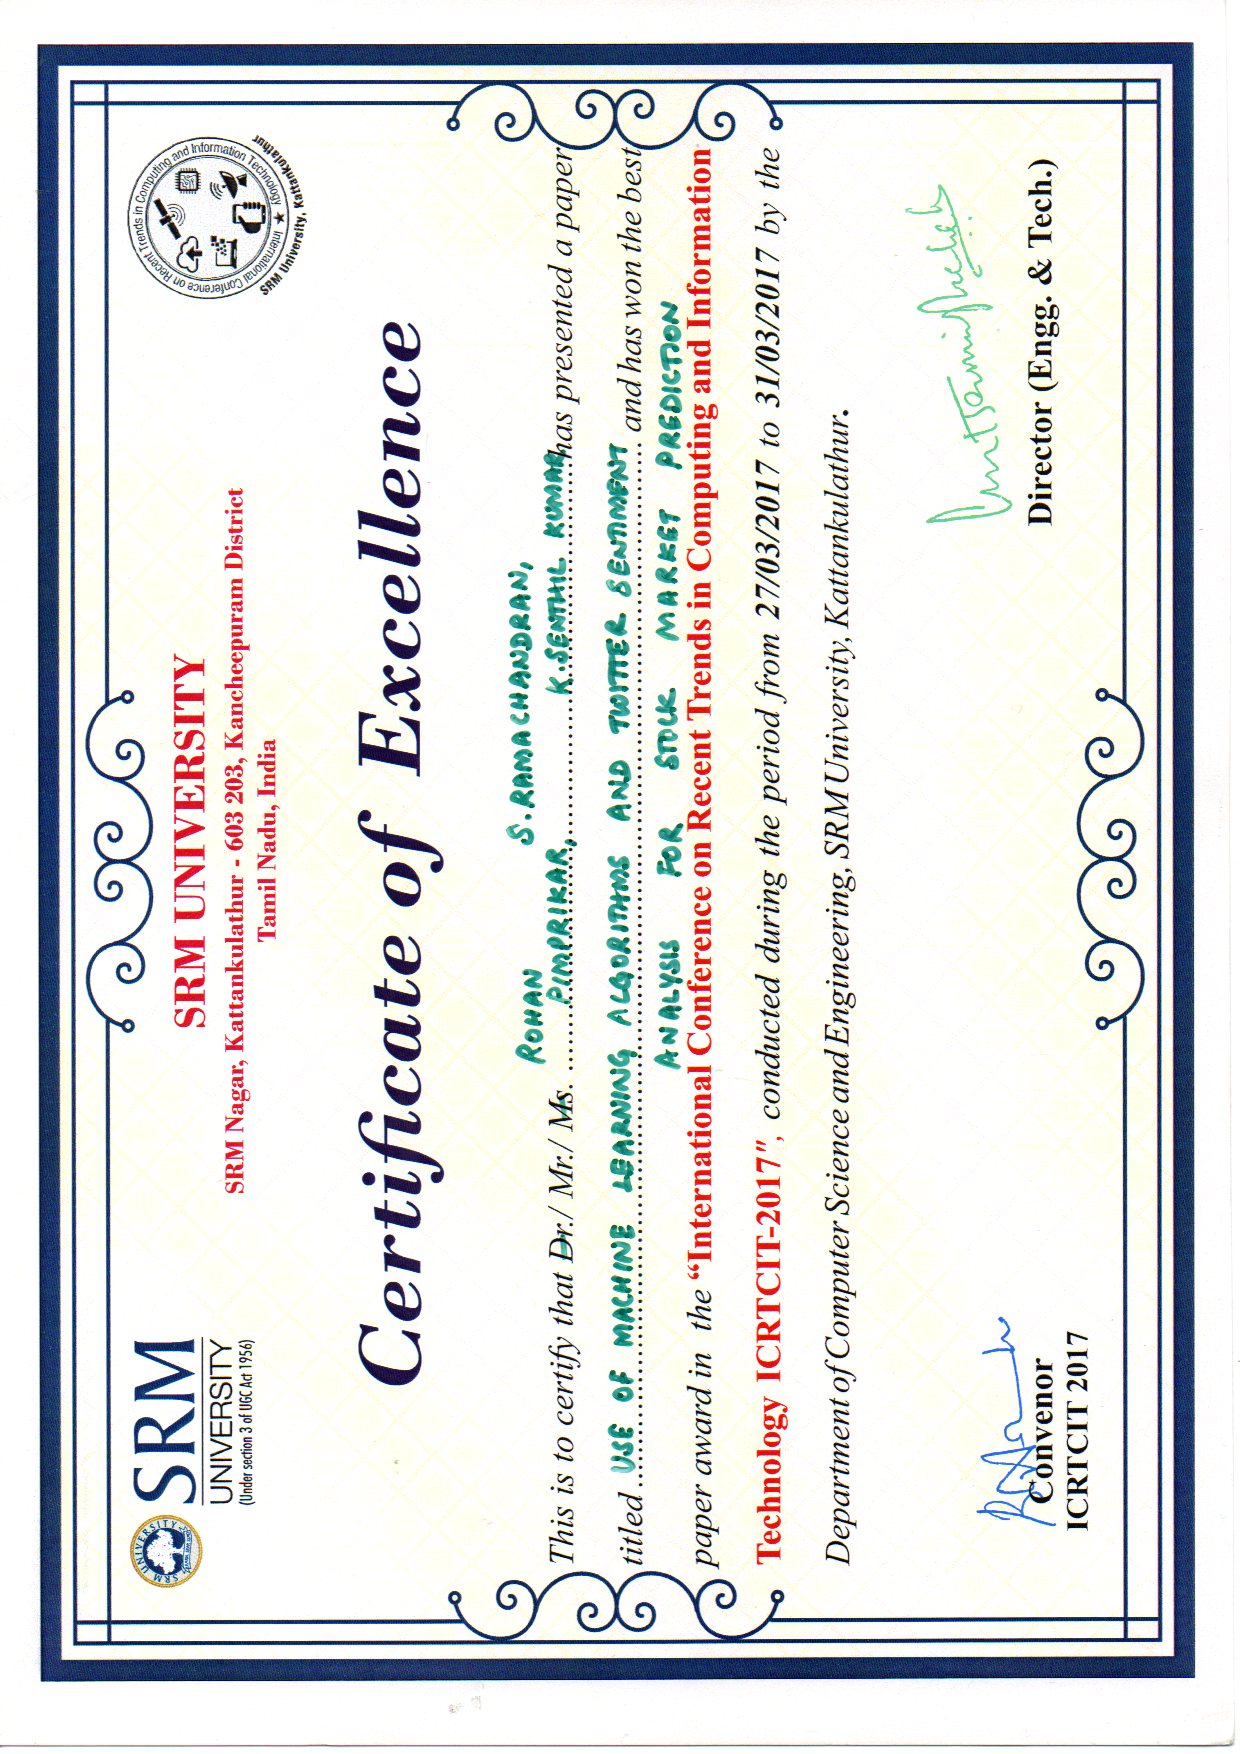 SRM UNIVERSITY
SRM
UNIVERSITY
(Under section 3 of UGC Act 1956)
SRM UNIVERSITY
SRM Nagar, Kattankulathur - 603 203, Kancheepuram District
Tamil Nadu, India
International Conference on Recent Trends in Computing and Information Technology
SRM University, Kattankulathur
Certificate of Excellence
ROHAN S. RAMACHANDRAN,
This is to certify that Dr./ Mr./ Ms. PIMPRIKAR, K. SENTHIL KUMAR has presented a paper
titled USE OF MACHINE LEARNING ALGORITHMS AND TWITTER SENTIMENT and has won the best
ANALYSIS FOR STOCK MARKET PREDICTION
paper award in the “International Conference on Recent Trends in Computing and Information
Technology ICRTCIT-2017", conducted during the period from 27/03/2017 to 31/03/2017 by the
Department of Computer Science and Engineering, SRM University, Kattankulathur.
Convenor
ICRTCIT 2017
Director (Engg. & Tech.)